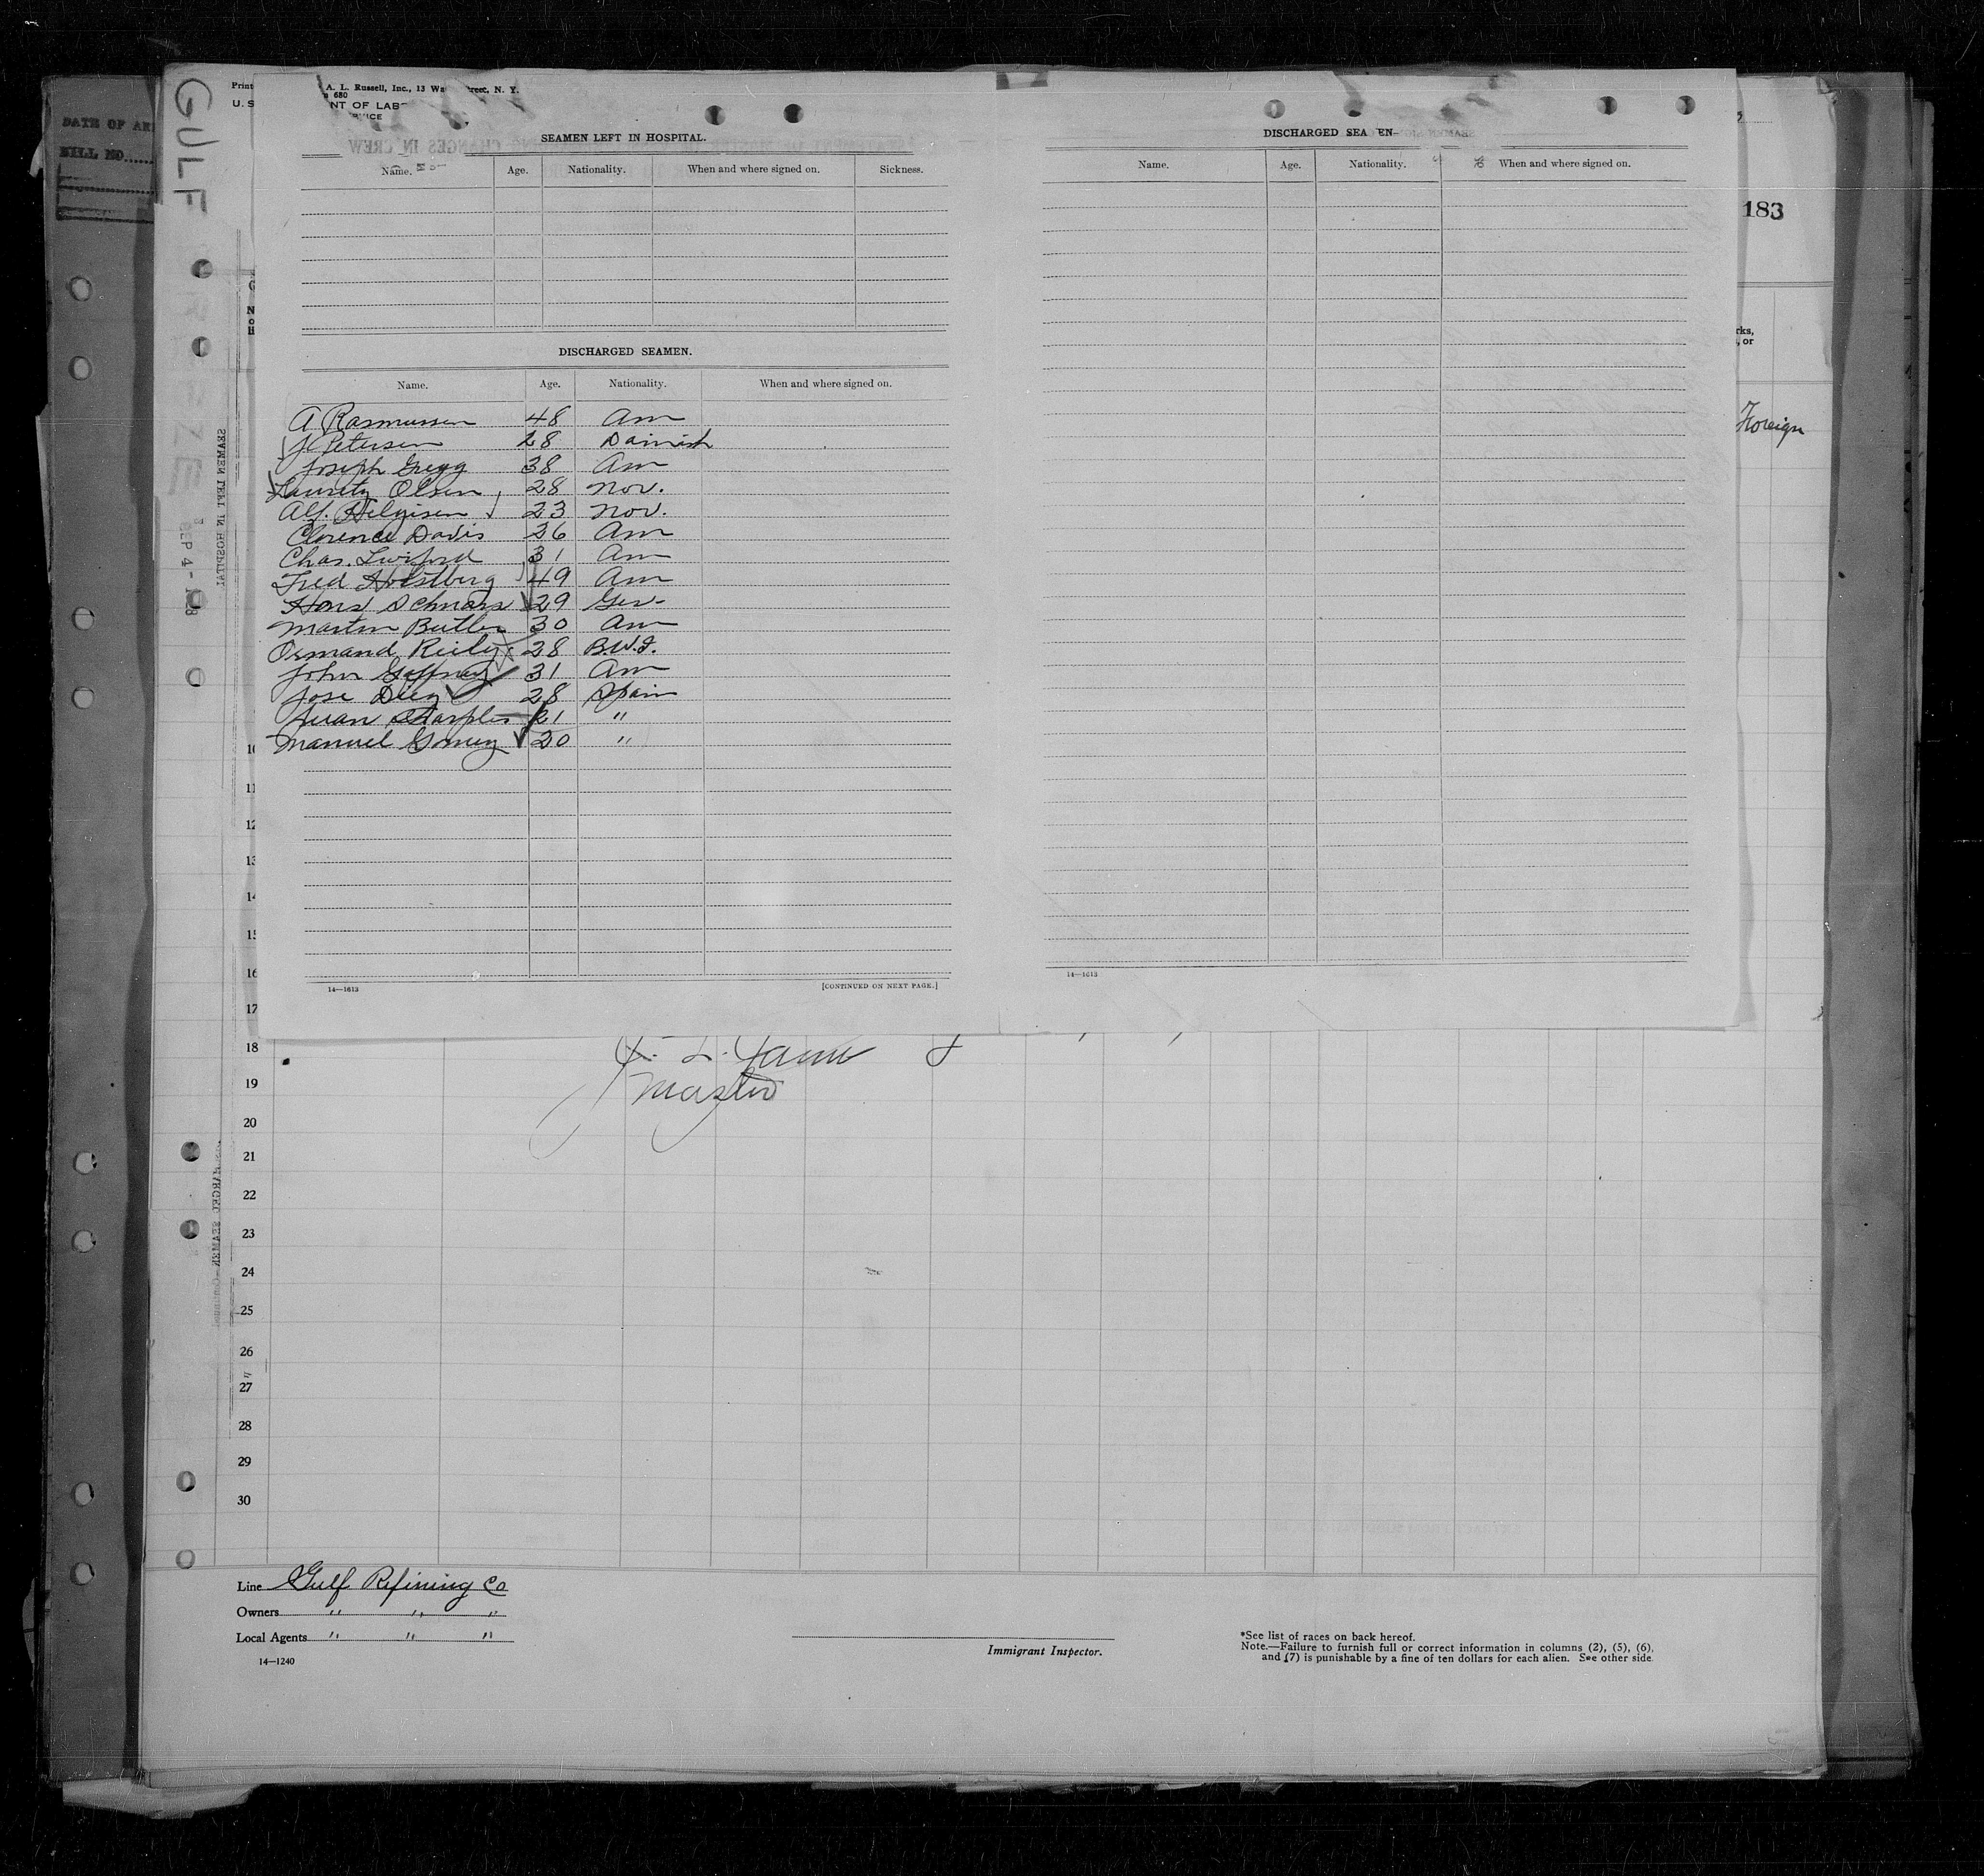 GULF
DATE OF
BILL NO.
SEP 4 -
SEAMEN LEFT IN HOSPITAL
Print
A. L. Russell, Inc., 13 Wa Street, N. Y.
680
U. S
NT OF LAB
SEAMEN LEFT IN HOSPITAL.
Name. Age. Nationality. When and where signed on. Sickness.
DISCHARGED SEAMEN.
Name. Age. Nationality. When and where signed on.
A Rasmussen 48 Am
Petersen 28 Dainish
Joseph Gregg 38 Am
Lauritz Olsen 28 Nor.
Alf. Helgisen 23 Nor.
Clarence Davis 36 Am
Chas. 31 Am
Fred Holstberg 49 Am
Hans Schnars 29 Ger-
Martin Butler 30 Am
Ormand Reily 28 B.W.I.
John Gaffney 31 Am
Jose Diez 28 Spain
Juan 21 "
Manuel Gomez 20 "
14—1613 [CONTINUED ON NEXT PAGE.]
DISCHARGED SEA EN
Name. Age. Nationality. When and where signed on.
14—1613
183
rks,
, or
Foreign
10
11
12
13
14
15
16
17
18
19
Master
20
21
22
23
24
25
26
27
28
29
30
Line Gulf Refining Co
Owners " " "
Local Agents " " "
14—1240
Immigrant Inspector.
*See list of races on back hereof.
Note.—Failure to furnish full or correct information in columns (2), (5), (6),
and (7) is punishable by a fine of ten dollars for each alien. See other side